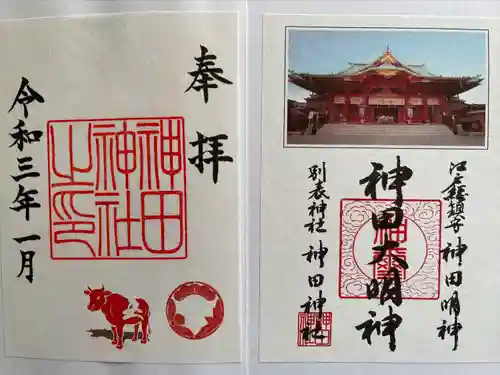 奉拝
神田
神社
之印
令和三年一月
江戸総鎮守 神田明神
神田大明神
別表神社 神田神社